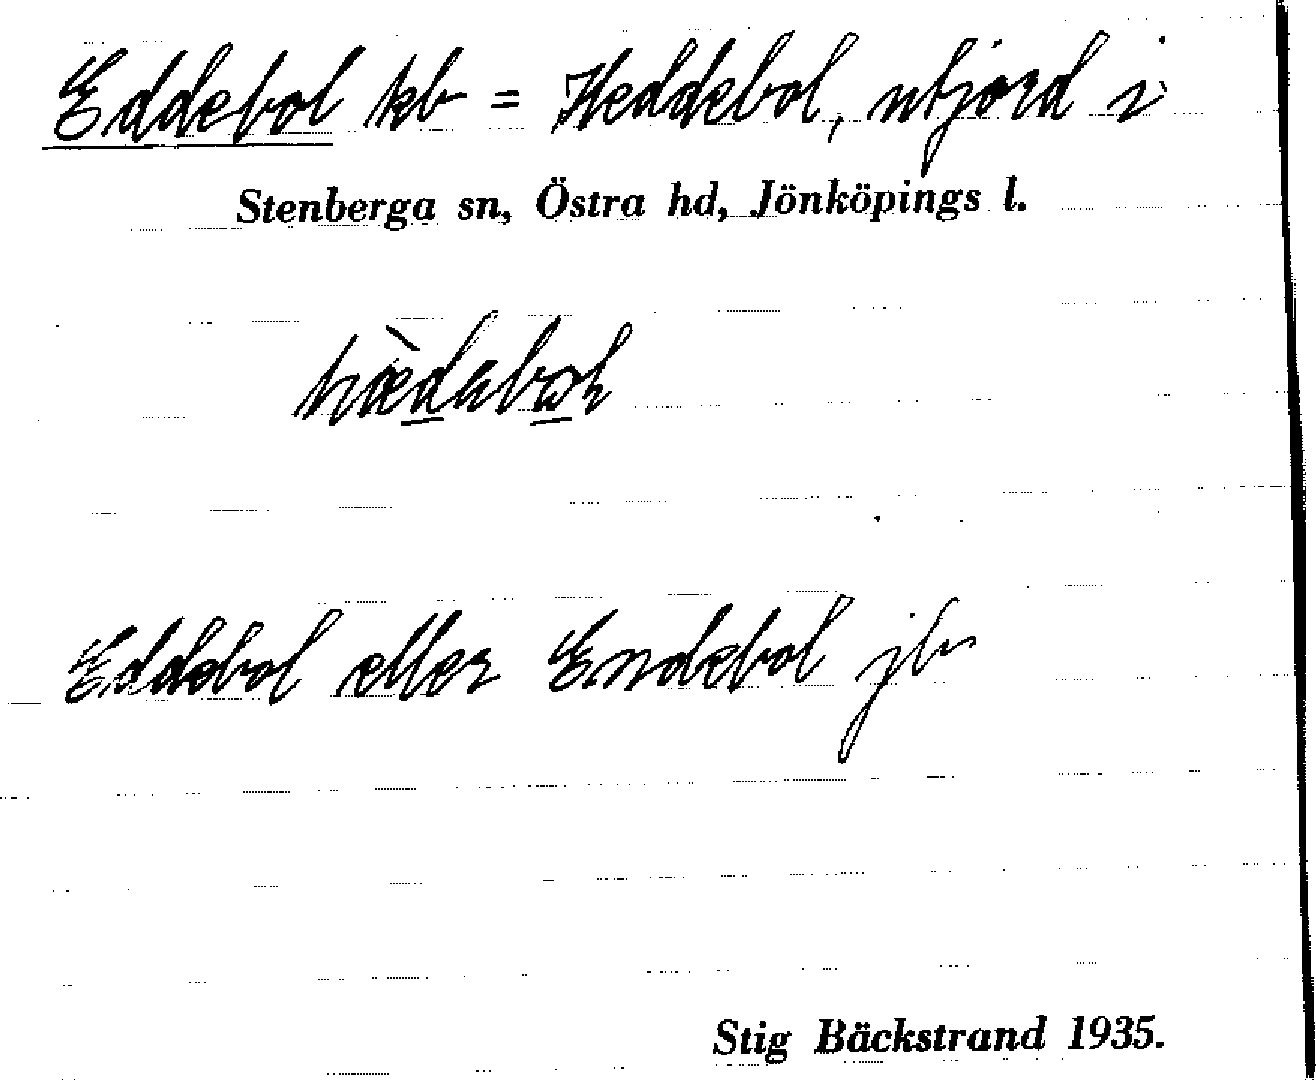 Eddebol kb = Heddebol, utjord i
Stenberga sn, Östra hd, Jönköpings l.
Eddebol eller Endebol jb
Stig Bäckstrand 1935.